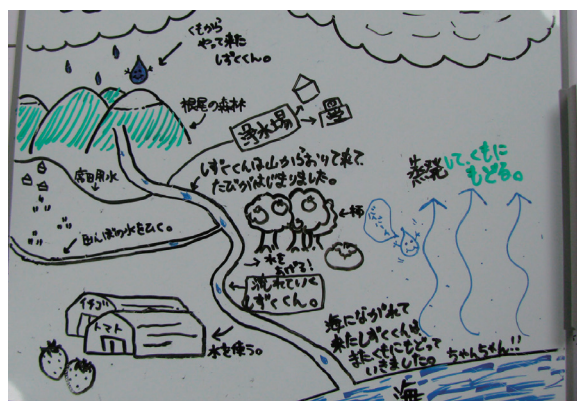 くもから
やって来た
しずくくん。
根尾の森林
浄水場
席田用水
しずくくんは山からおりて来て
たびがはじまりました。
蒸発して、くもに
もどる。
田んぼの水をひく。
柿
→水を
あげる!
流れていく
しずくくん。
イチゴ
トマト
水を使う。
海にながれて
来たしずくくんは
またくもにもどって
いきました。ちゃんちゃん!!
海